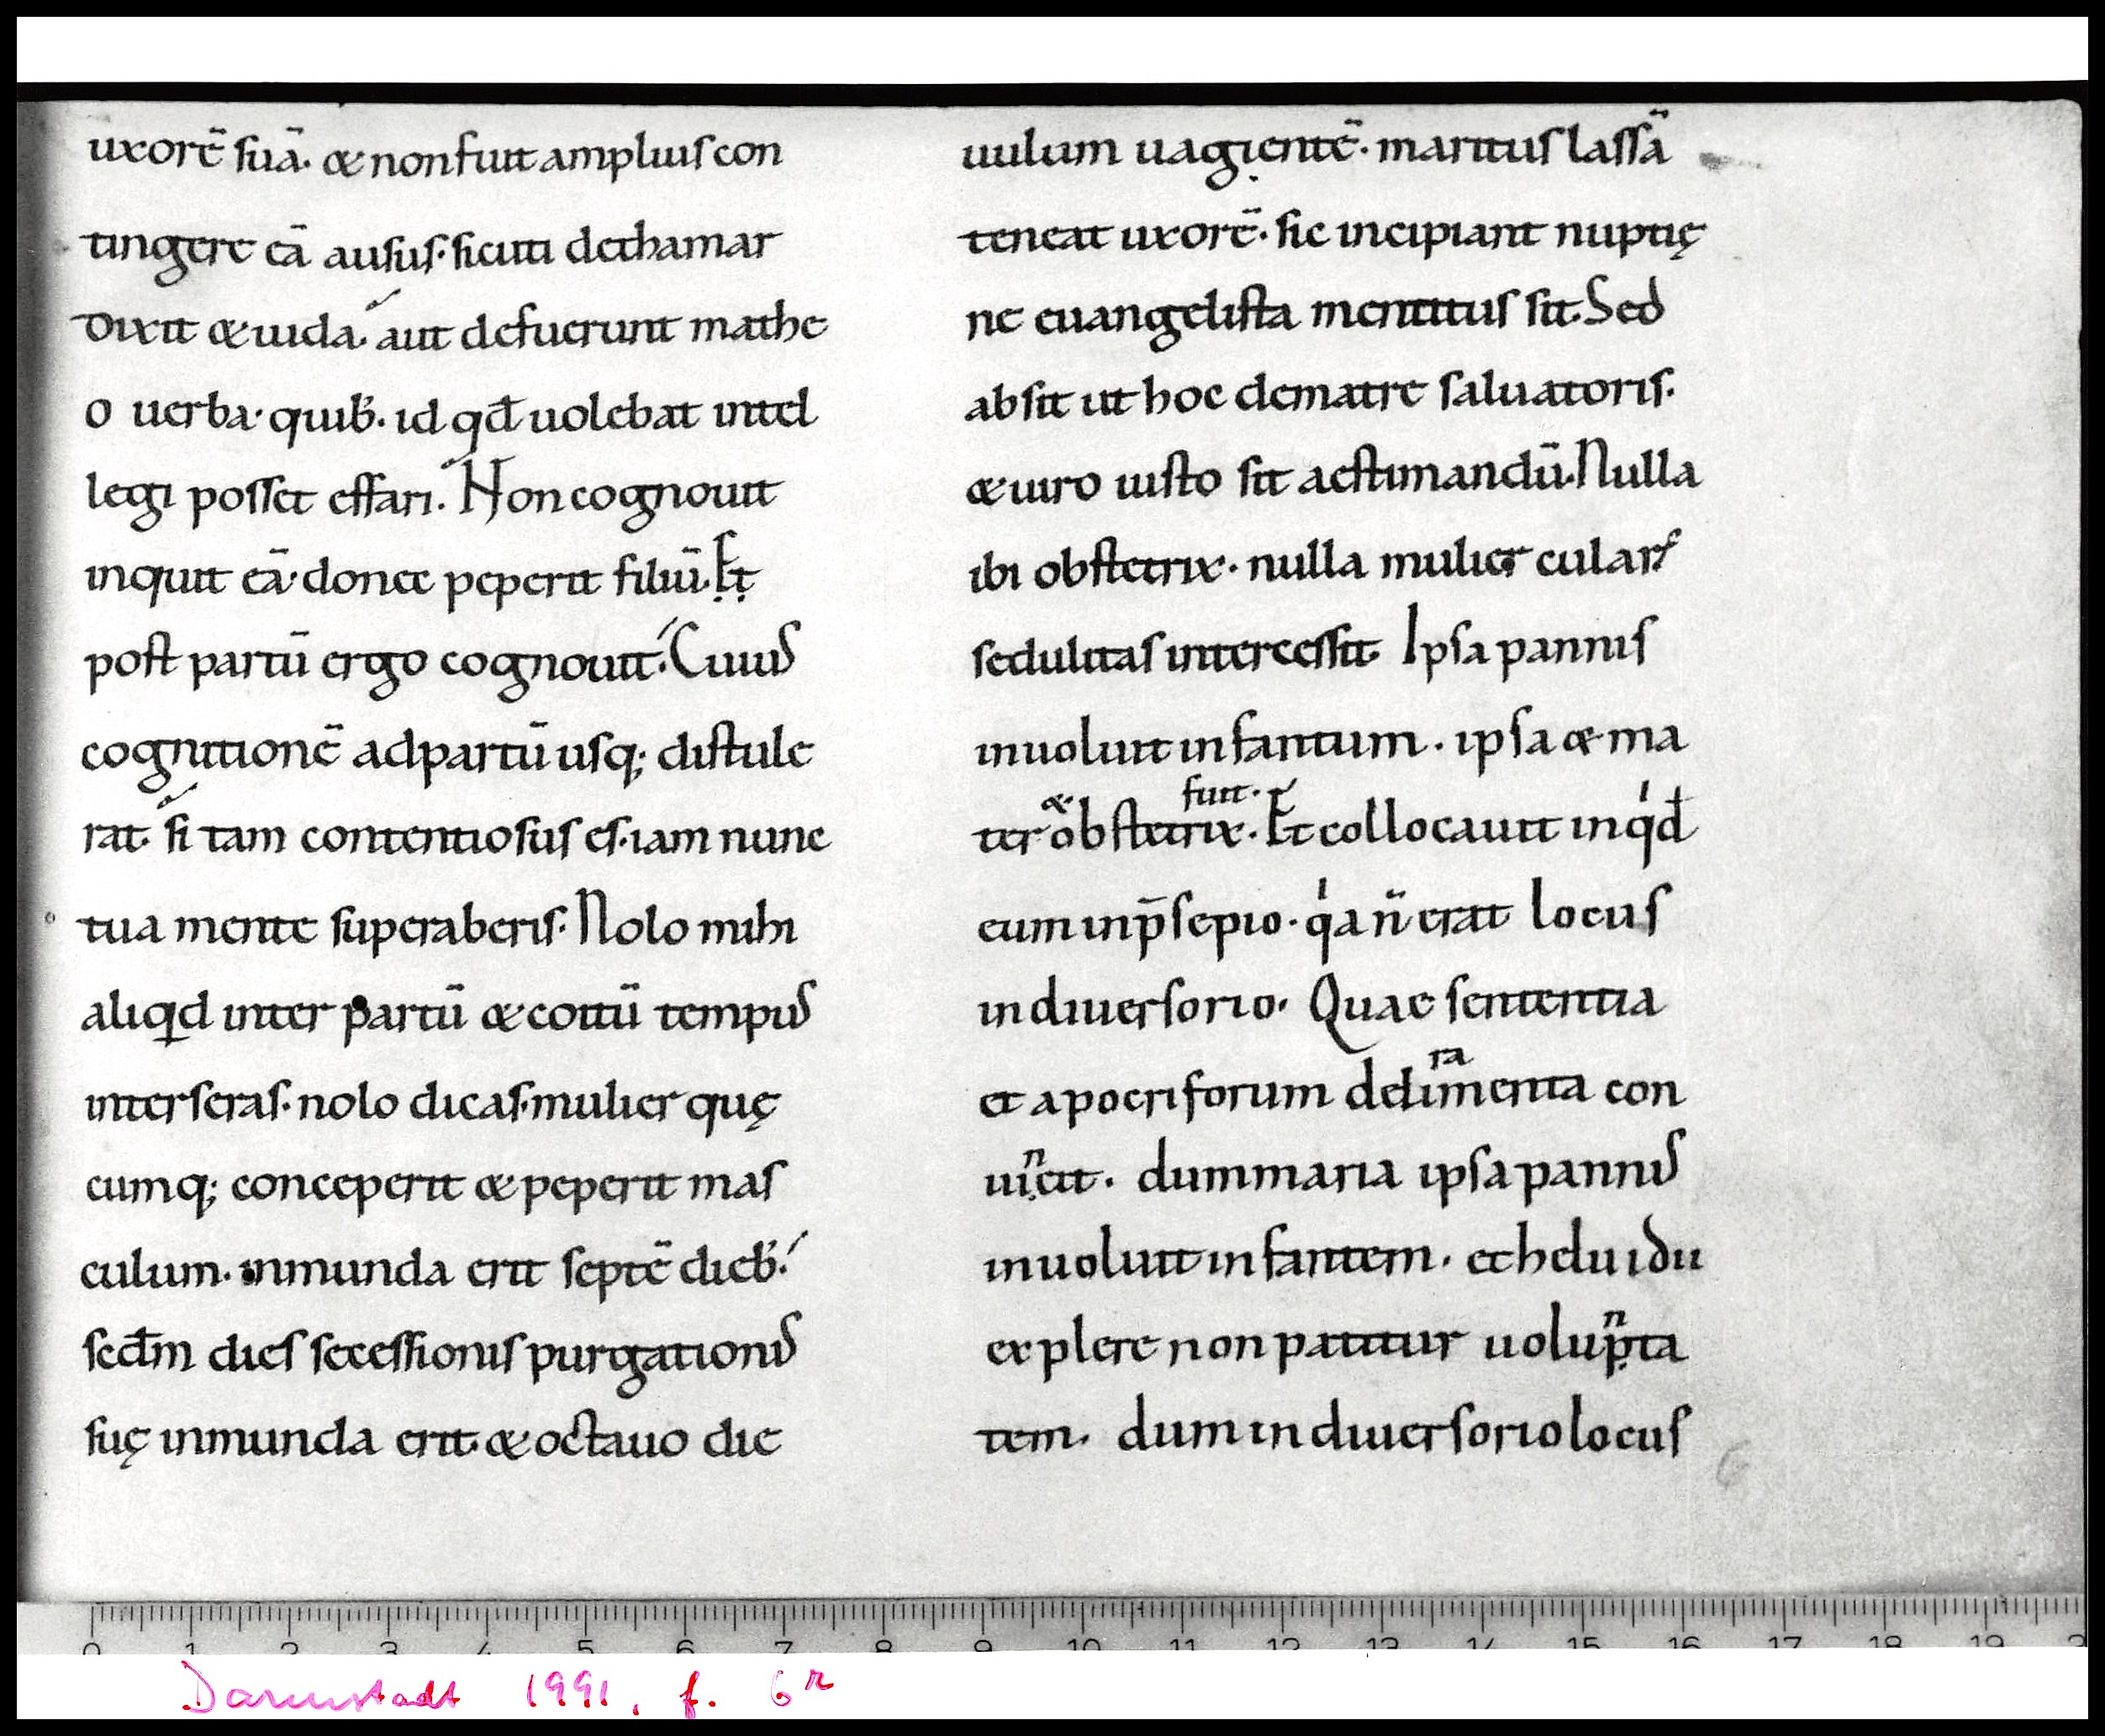 uxorē suā. & non fuit amplius con
tingere eā ausus. sicuti de thamar
dixit & iuda. aut defuerunt mathe
o uerba. quib. id qđ uolebat intel
legi posset effari. Non cognouit
inquit eā. donec peperit filiū. Et
post partū ergo cognouit. Cuius
cognitionē ad partū usq; distule
rat. si tam contentiosus es. iam nunc
tua mente superaberis. Nolo mihi
aliqd inter partū & coitū tempus
interseras. nolo dicas. mulier quę
cumq; conceperit & peperit mas
culum. inmunda erit septē dieb.
scdm dies secessionis purgationis
suę inmunda erit. & octauo die
uulum uagientē. maritus lassā
teneat uxorē. sic incipiant nuptię
ne euangelista mentitus sit. Sed
absit ut hoc de matre saluatoris.
& uiro iusto sit aestimandū. Nulla
ibi obstetrix. nulla mulier culars
sedulitas intercessit. Ipsa pannis
inuoluit infantum. ipsa & ma
&
fuit.
ter obstetrix. Et collocauit inqd
eum in p̄sepio. qa n̄ erat locus
in diuersorio. Quae sententia
ra
et apocriforum delimenta con
n
uicit. dum maria ipsa pannis
inuoluit infantem. et heluidii
n
explere non patitur uolupta
tem. dum in diuersorio locus
0 1 2 3 4 5 6 7 8 9 10 11 12 13 14 15 16 17 18 19 2
Darmstadt 1991, f. 6r